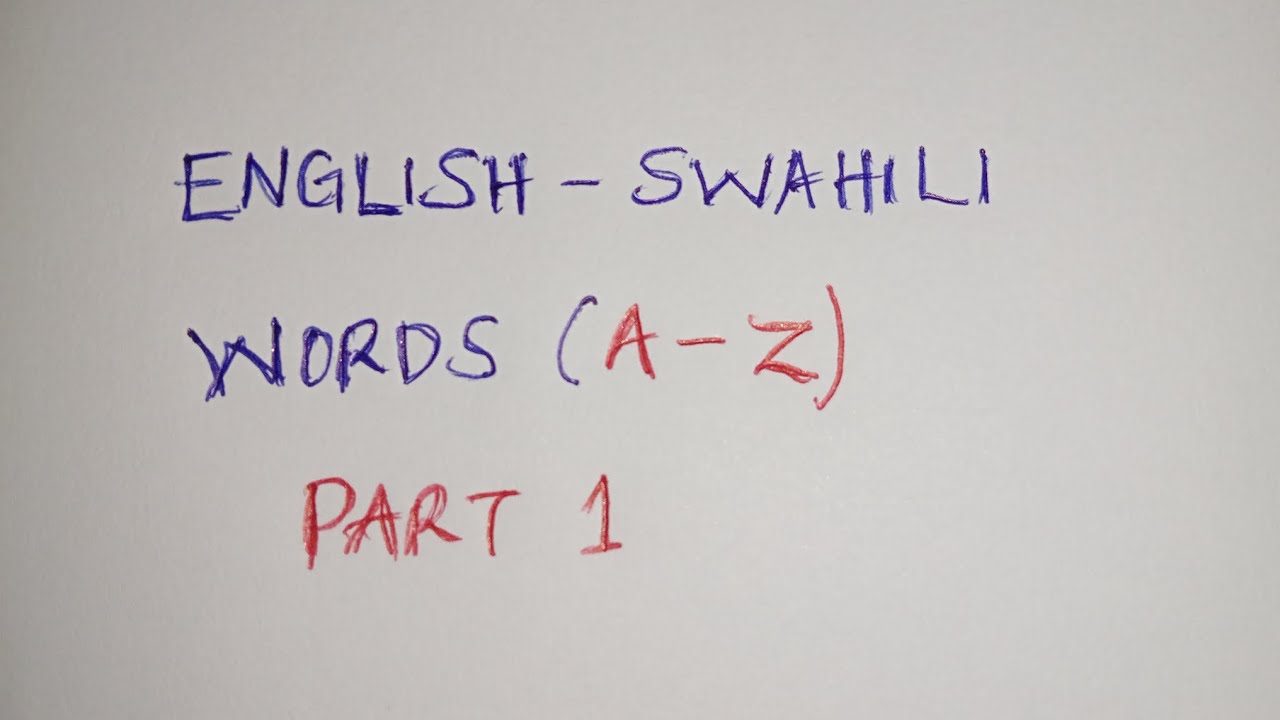 ENGLISH - SWAHILI
WORDS (A - Z)
PART 1